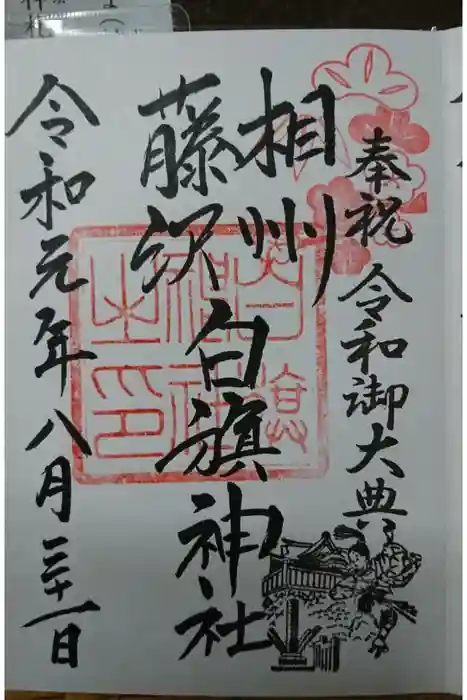 奉祝 令和御大典
相州
藤沢
白旗神社
令和元年八月三十一日
白旗神社之印